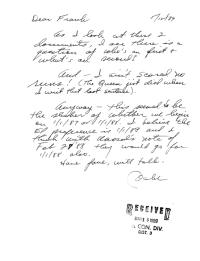 Dear Frank 7/10/89
As I look at these 2
documents, I see there is a
question of who's on first &
what's on second!
And - I ain't scared no
more! (The Queen just died when
I writ that last sentence).
Anyway - this would be
the of whether we begin
on 1/1/87 or 1/1/88. I believe the
preference is 1/1/88 and I
think (with note of
Feb 27 88 they would go for
1/1/88 also.
Have fun, will talk.
RECEIVED
1989
CON. DIV.
DIST. 3